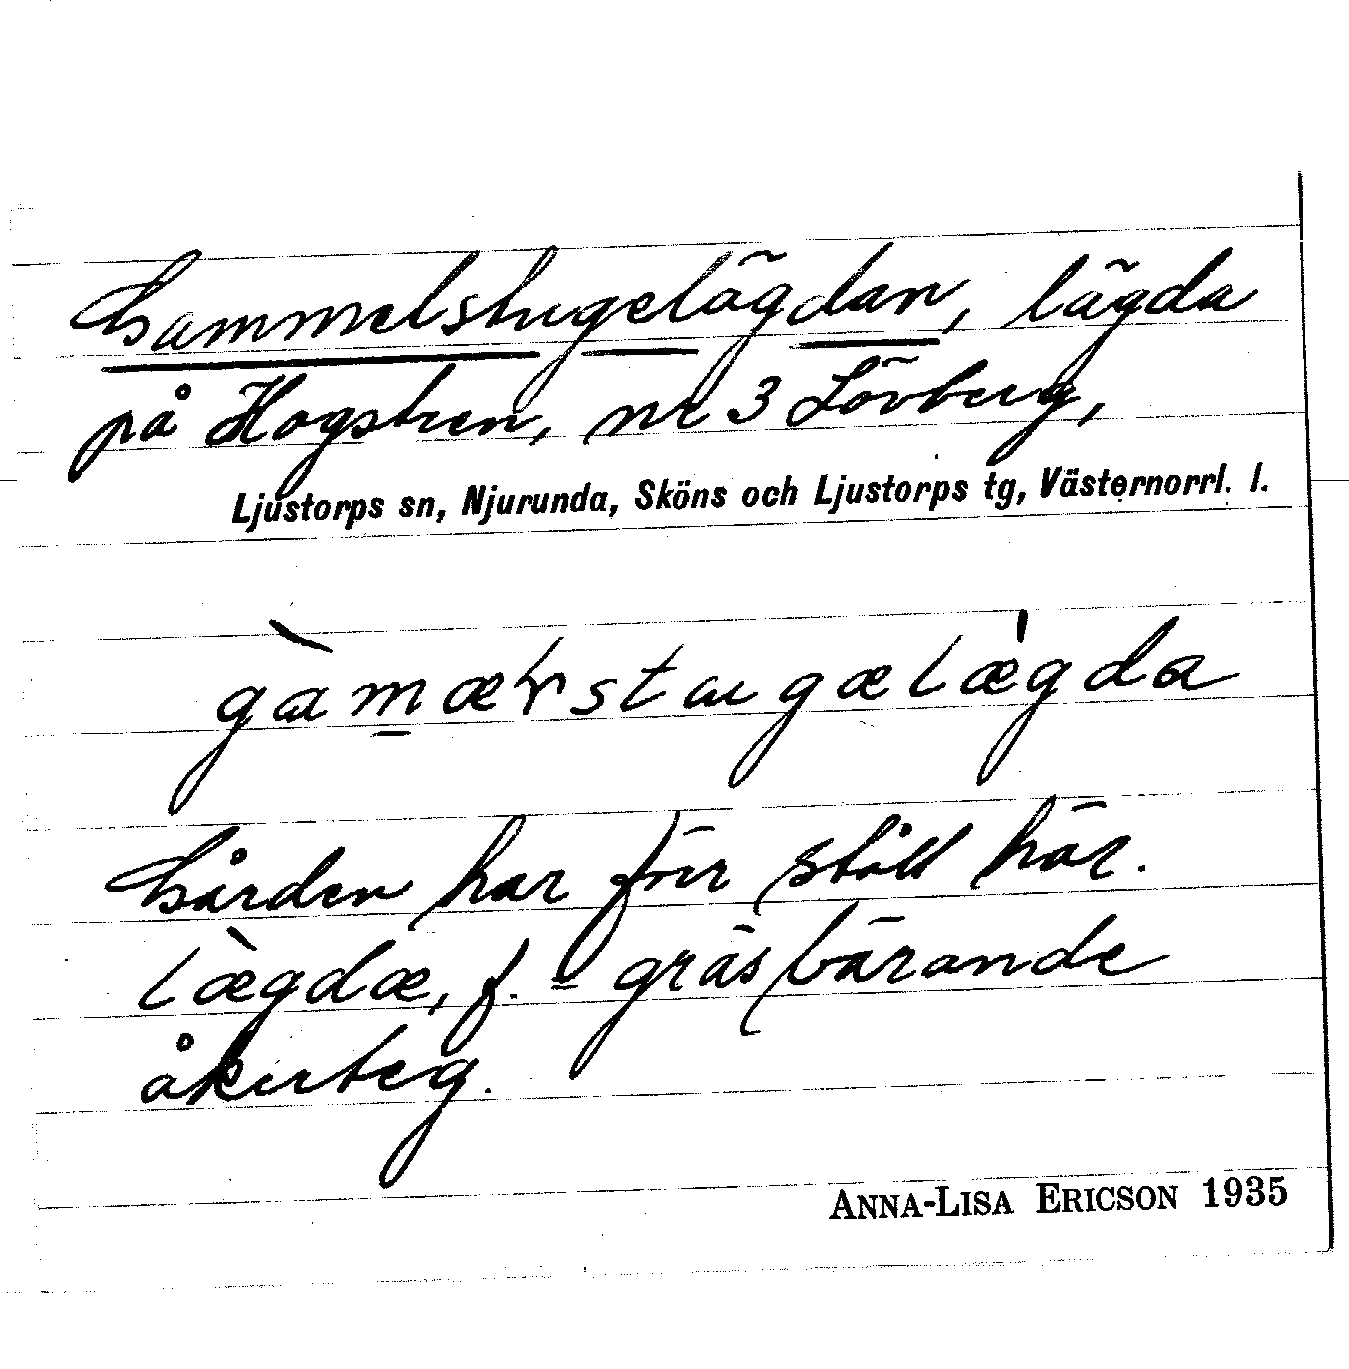 Gammelstugelägdan, lägda
på Hogstren, nr 3 Lövberg,
Ljustorps sn, Njurunda, Sköns och Ljustorps tg, Västernorrl. l.
Gården har förr stått här.
lægdæ, f. = gräsbärande
åkerteg.
ANNA-LISA ERICSON 1935